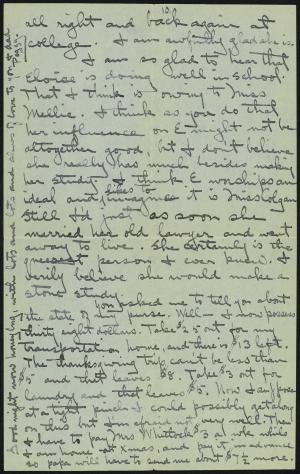 10.
all right and back again at
college. I am awfully glad she is.
I am so glad to hear that
Eloise is doing well in school.
That I think is owing to Miss
Mellie. I think as you do that
her influence on E. might not be
altogether good, but I don't believe
she really has much besides making
her study. I think E. worships an
ideal and likes to it is Miss
Still I'd just as soon she
married her old lawyer and went
away to live. She certainly is the
queerest person I ever knew. I
verily believe she would make a
stone study.
You asked me to tell you about
the state of my purse. Well - I now possess
thirty eight dollars. Take $25 out for my
transportation home, and there is $13 left.
The thanksgiving trip can't be less than
$5 and that leaves $8. Take $3 out for
laundry and that leaves $5. Now I suppose
at a tight pinch I could possibly get along
on this but I'm afraid not very well. Then
I have to pay Mrs. $ a wk. while
I am home at Xmas, and pay it in advance
so papa will have to send me about $7½ more.
Good night now honey, with lots and lots and of love to you & dad
Peggy.